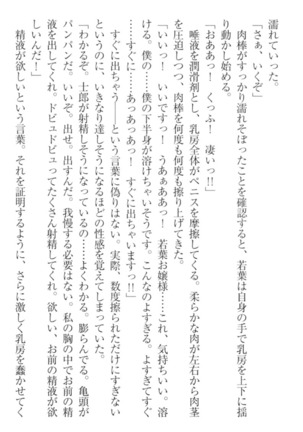 濡れていった。
「さぁ、いくぞ」
　肉棒がすっかり濡れそぼったことを確認すると、若葉は自身の手で乳房を上下に揺
り動かし始める。
「おああっ！　くっふ！　凄いっ!!」
　唾液を潤滑剤とし、乳房全体がペニスを摩擦してくる。柔らかな肉が左右から肉茎
を圧迫しつつ、肉棒を何度も何度も擦り上げてきた。
「いいっ！　いいですっ！　うあぁああっ！　若葉お嬢様……これ、気持ちいい。溶
ける。僕の……僕の下半身が溶けちゃいそうです。こんなのよすぎる。よすぎてすぐ
……すぐに……あっあっあっ！　すぐに出ちゃいますっ!!」
　すぐに出ちゃう――という言葉に偽りはない。実際、数度擦られただけにすぎない
というのに、いきなり達してしまいそうになるほどの性感を覚えてしまっていた。
「わかるぞ。士郎が射精しそうになっているの……よくわかる。膨らんでる。亀頭が
パンパンだ。いいぞ。出せ。出すんだ。我慢する必要はない。私の胸の中でお前の精
液を出してくれ。ドビュドビュってたくさん射精してくれ。欲しい、お前の精液が欲
しいんだ！」
　精液が欲しいという言葉。それを証明するように、さらに激しく乳房を蠢かせてく